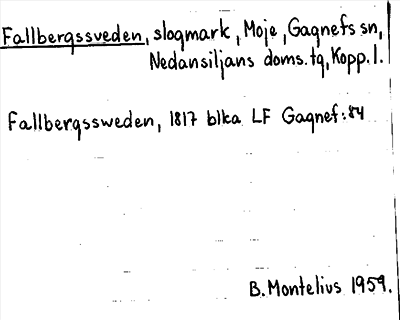 Fallbergssveden, slogmark, Moje, Gagnefs sn,
Nedansiljans doms.tg, Kopp.l.
Fallbergssweden, 1817 blka LF Gagnef:84
B. Montelius 1959.